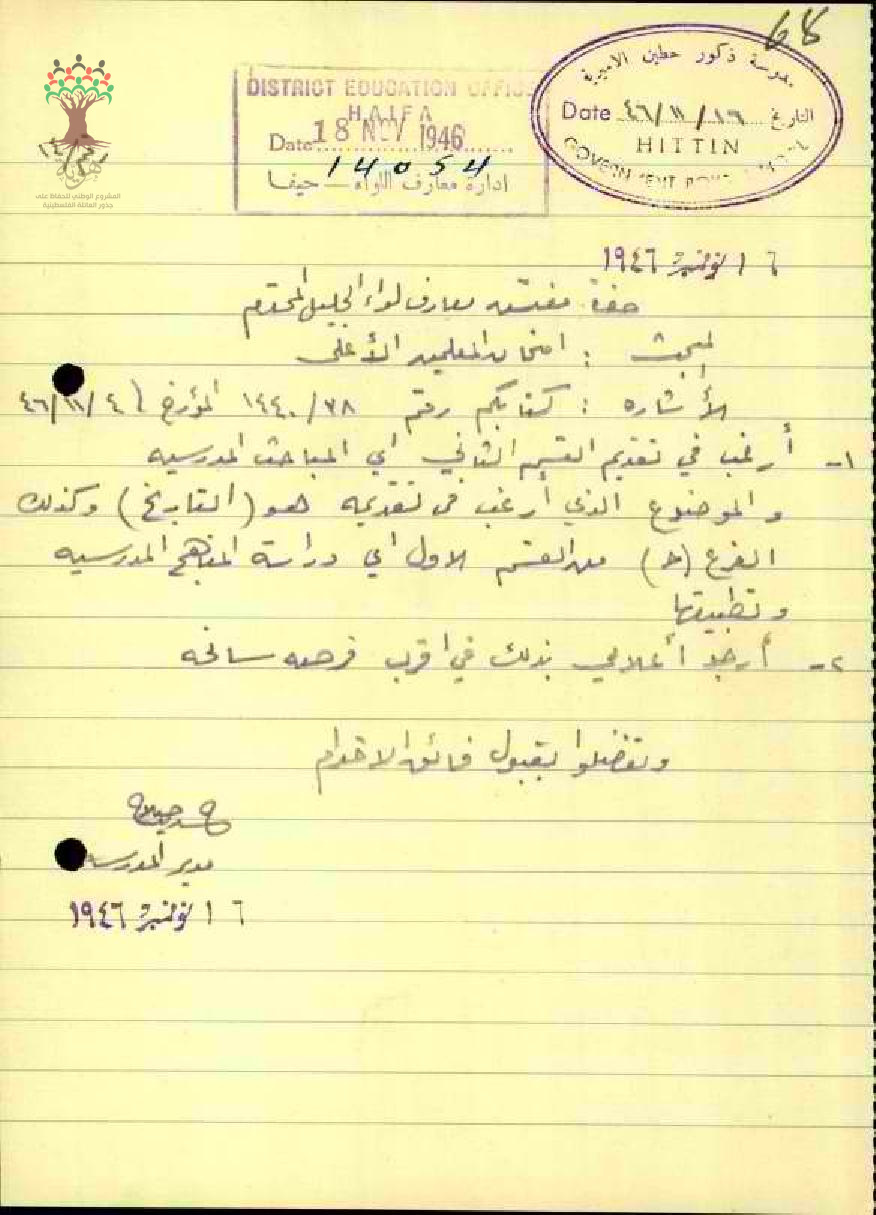 68
مدرسة ذكور حطين الاميرية
Date ٤٦/١١/١٦ التاريخ
HITTIN
GOVERNMENT BOYS
DISTRICT EDUCATION OFFICE
HAIFA
Date 18 NOV 1946
14054
ادارة معارف اللواء — حيفا
هوية
المشروع الوطني للحفاظ على
جذور العائلة الفلسطينية
١٦ نوفمبر ١٩٤٦
حضرة مفتش معارف لواء الجليل المحترم
المبحث : امتحان المعلمين الأعلى
الأشاره : كتابكم رقم ١٤٤٠/٧٨ المؤرخ ٤٦/١١/٤
١- أرغب في تقديم القسم الثاني اي المباحث المدرسيه
والموضوع الذي أرغب في تقديمه هو (التاريخ) وكذلك
الفرع (ح) من القسم الاول اي دراسة المناهج المدرسيه
وتطبيقها
٢- أرجو أعلامي بذلك في اقرب فرصه سانحه
وتفضلوا بقبول فائق الاحترام
مدير المدرسه
١٦ نوفمبر ١٩٤٦